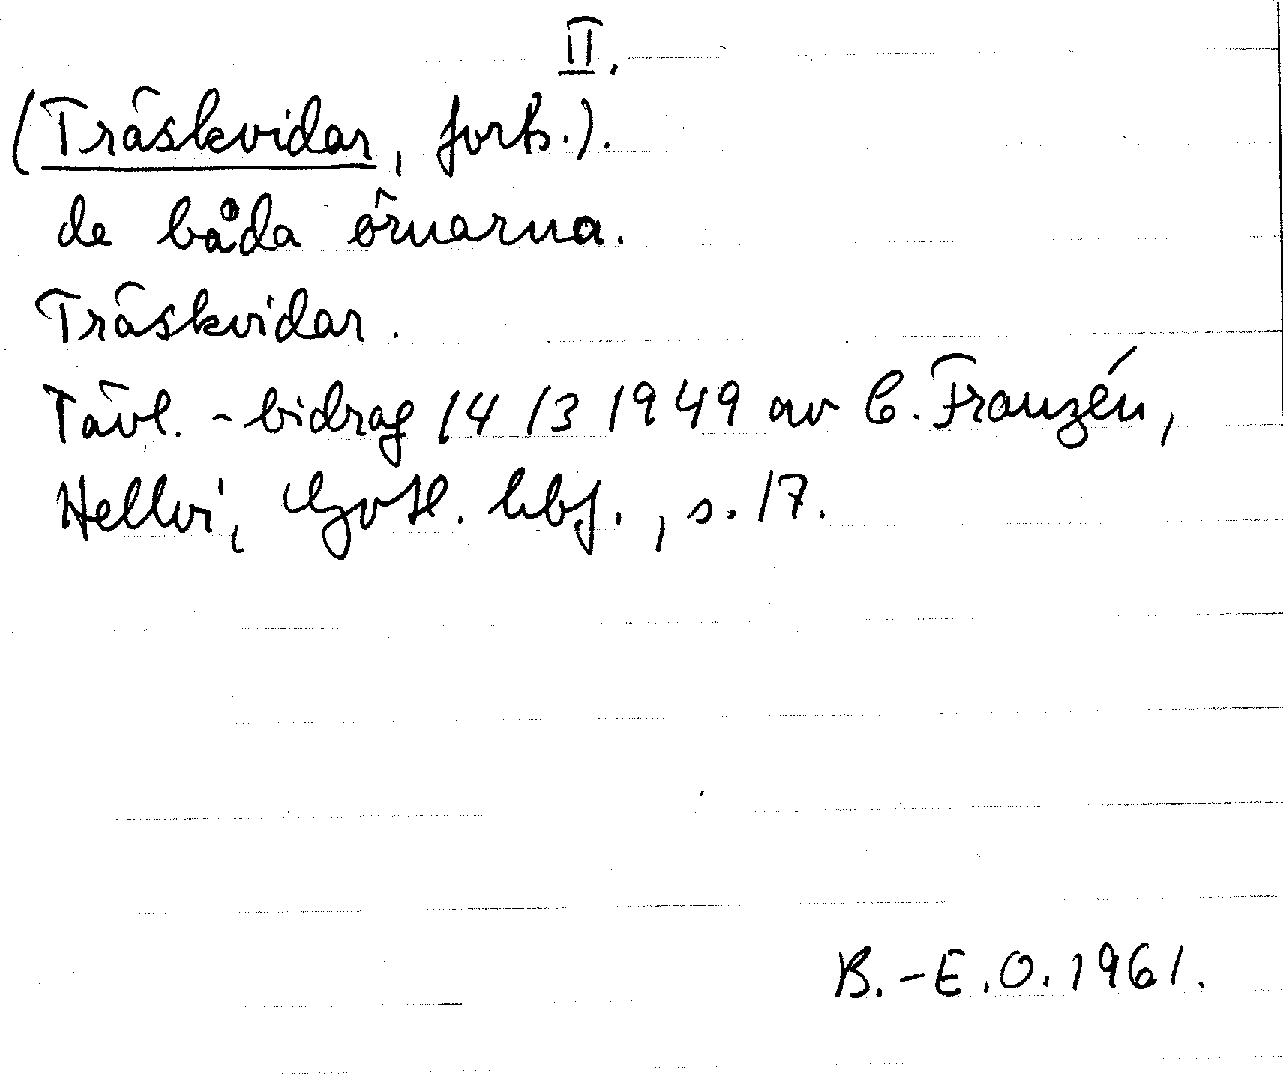 II.
(Träskvidar, forts.).
de båda örnarna.
Träskvidar.
Tävl.-bidrag 14/3 1949 av C. Franzén,
Hellvi, Gotl. hbf., s. 17.
B.-E.O. 1961.